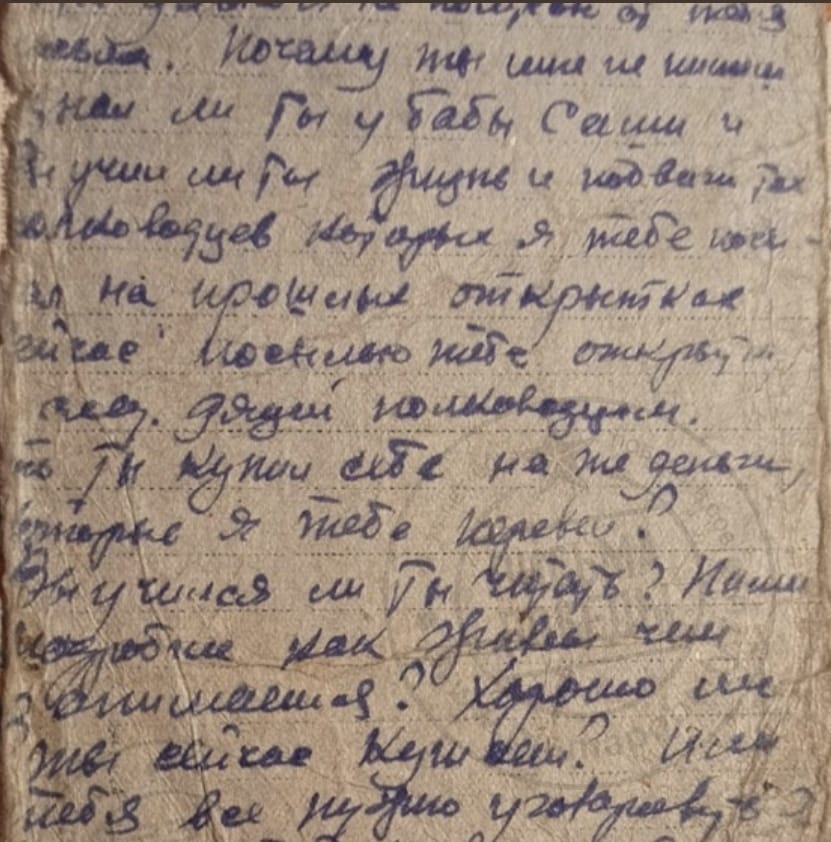 от тебя
Почему ты мне не пишешь
ли Ты у бабы Саши и
учил ли Ты жизнь и подвиги тех
полководцев которых я тебе посы-
ал на прошлых открытках
ейчас посылаю тебе открыт
след. дядей полководцем.
то Ты купил себе на те деньги,
оторые я тебе перевел?
Выучился ли Ты читать? Пиши
подробнее как живеш чем
занимаешся? Хорошо ли
ты сейчас кушаеш? Или
тебя все нужно уговаревуть?